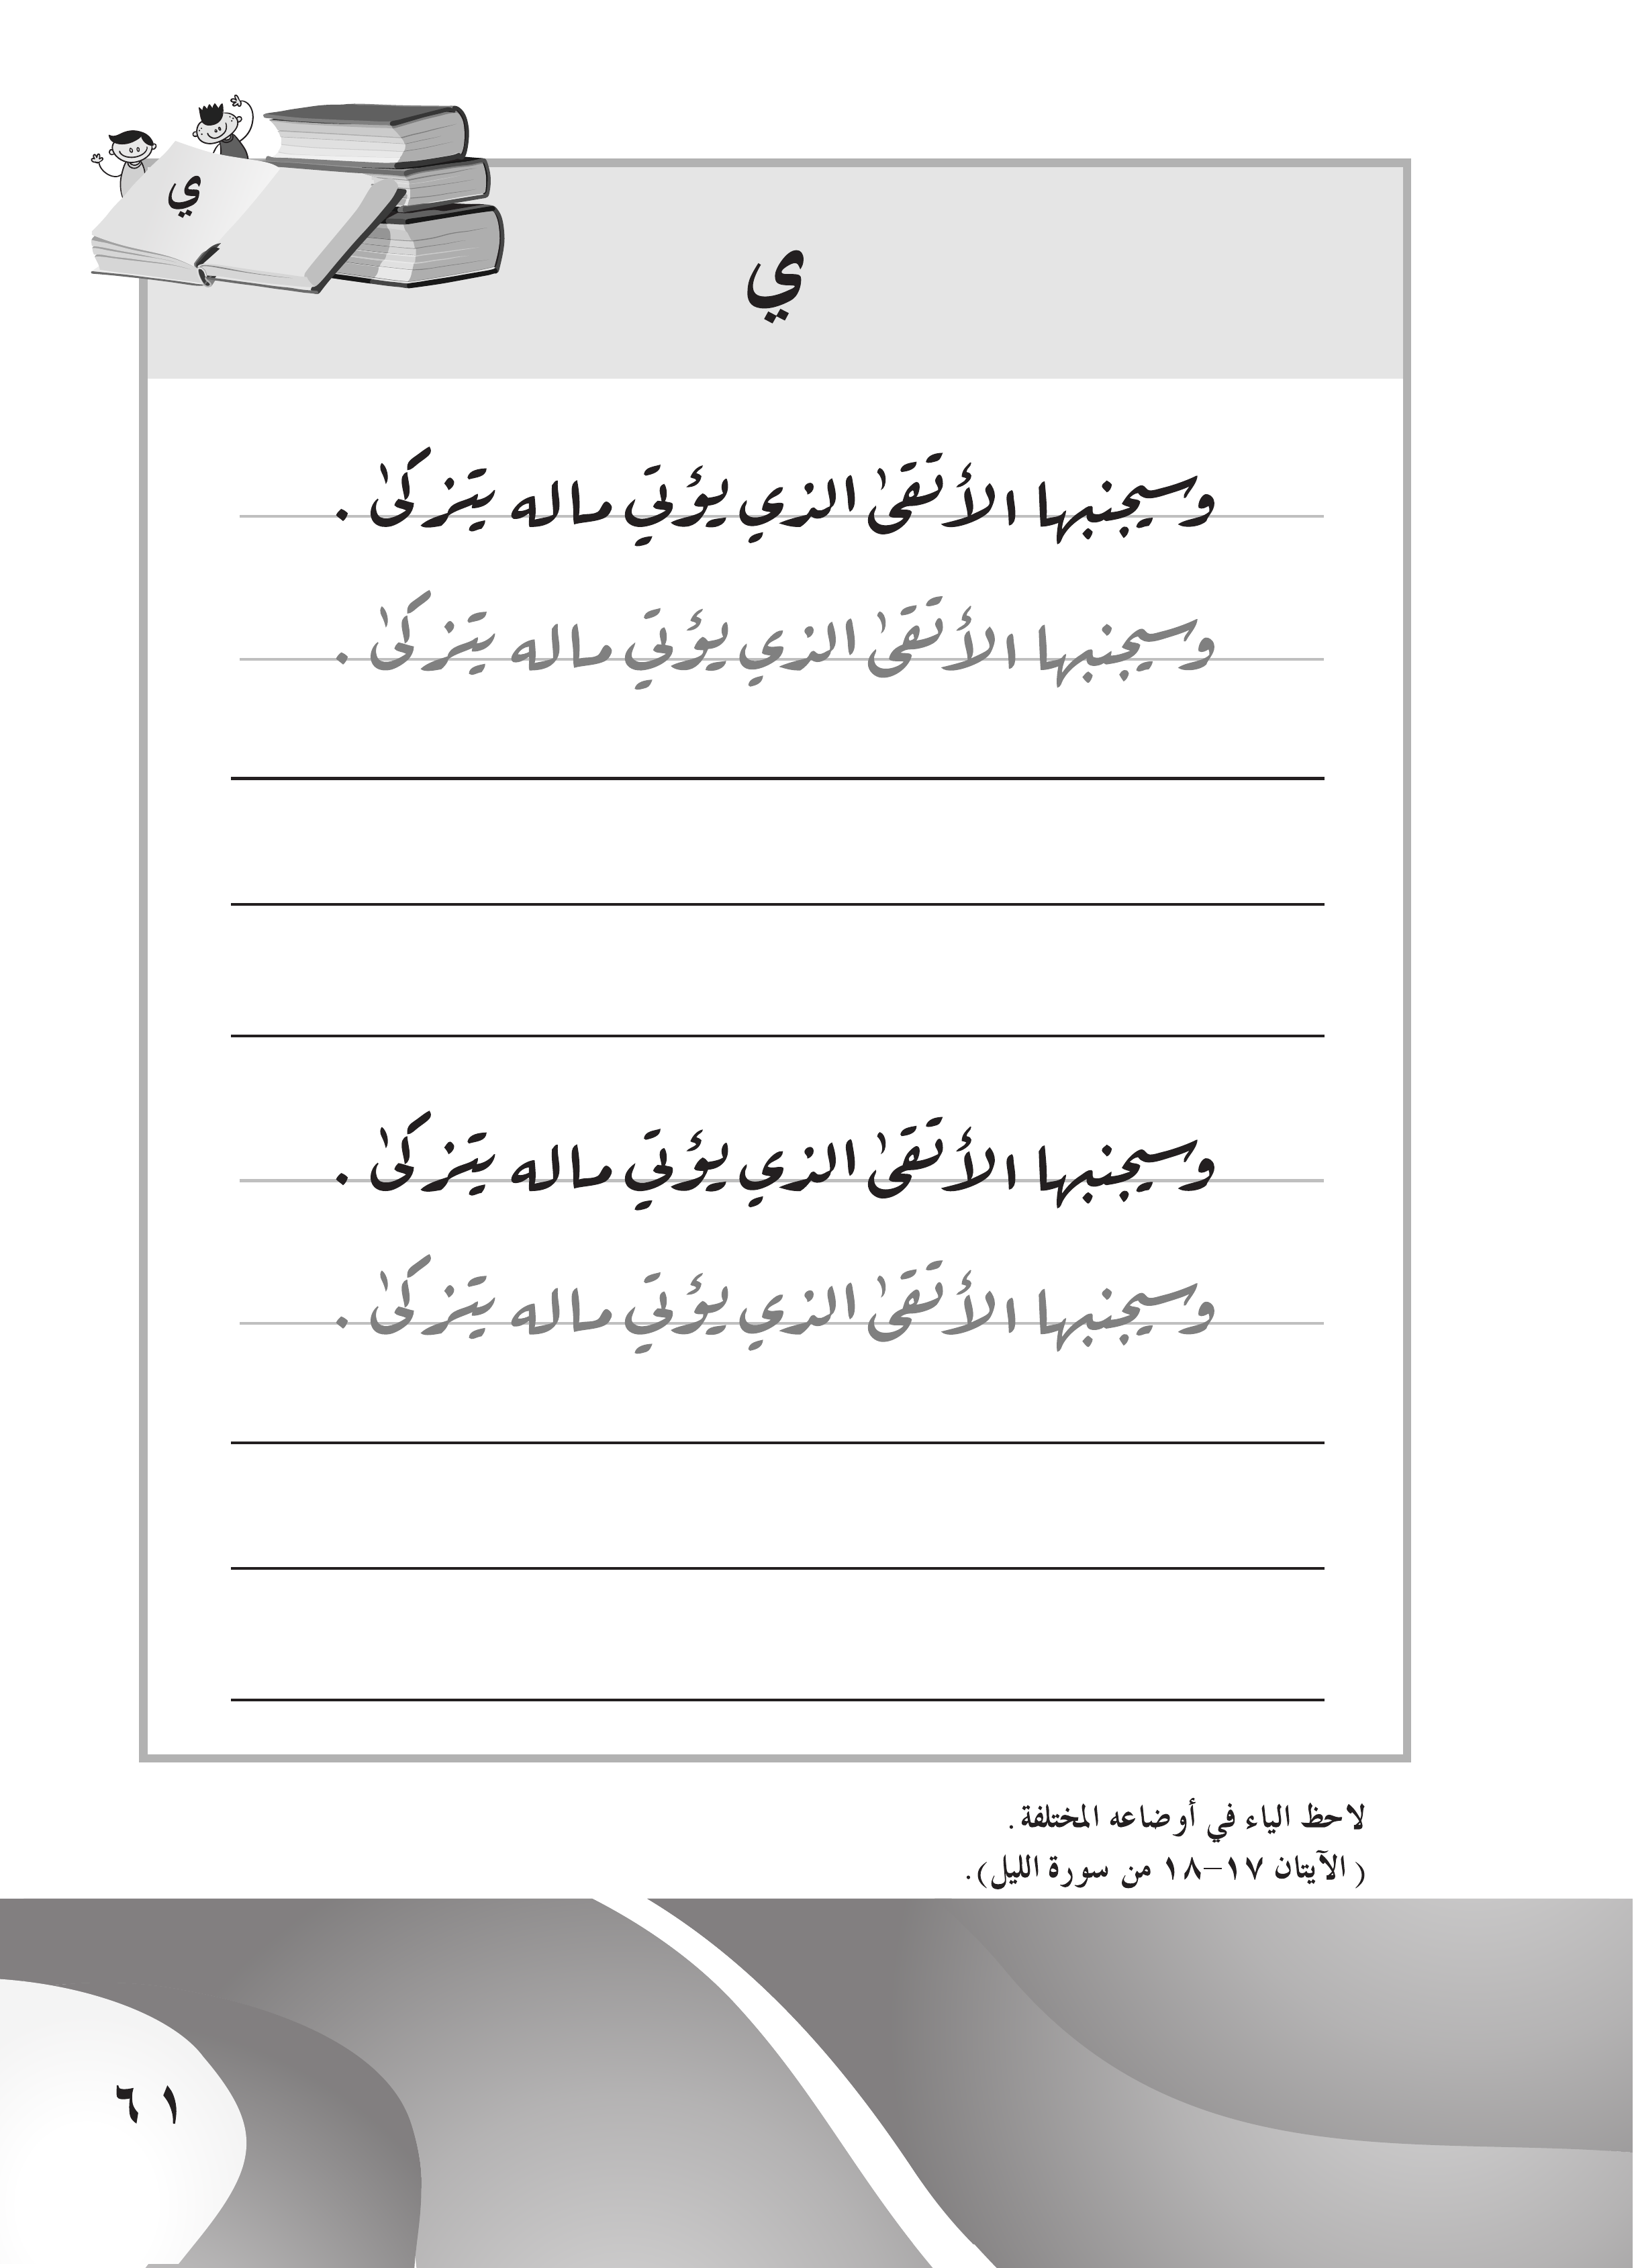 ي
ي
وسيجنبها الأتقىٰ الذي يؤتي ماله يتزكىٰ .
وسيجنبها الأتقىٰ الذي يؤتي ماله يتزكىٰ .
وسيجنبها الأتقىٰ الذي يؤتي ماله يتزكىٰ .
وسيجنبها الأتقىٰ الذي يؤتي ماله يتزكىٰ .
لاحظ الياء في أوضاعه المختلفة .
( الآيتان ١٧–١٨ من سورة الليل) .
٦١